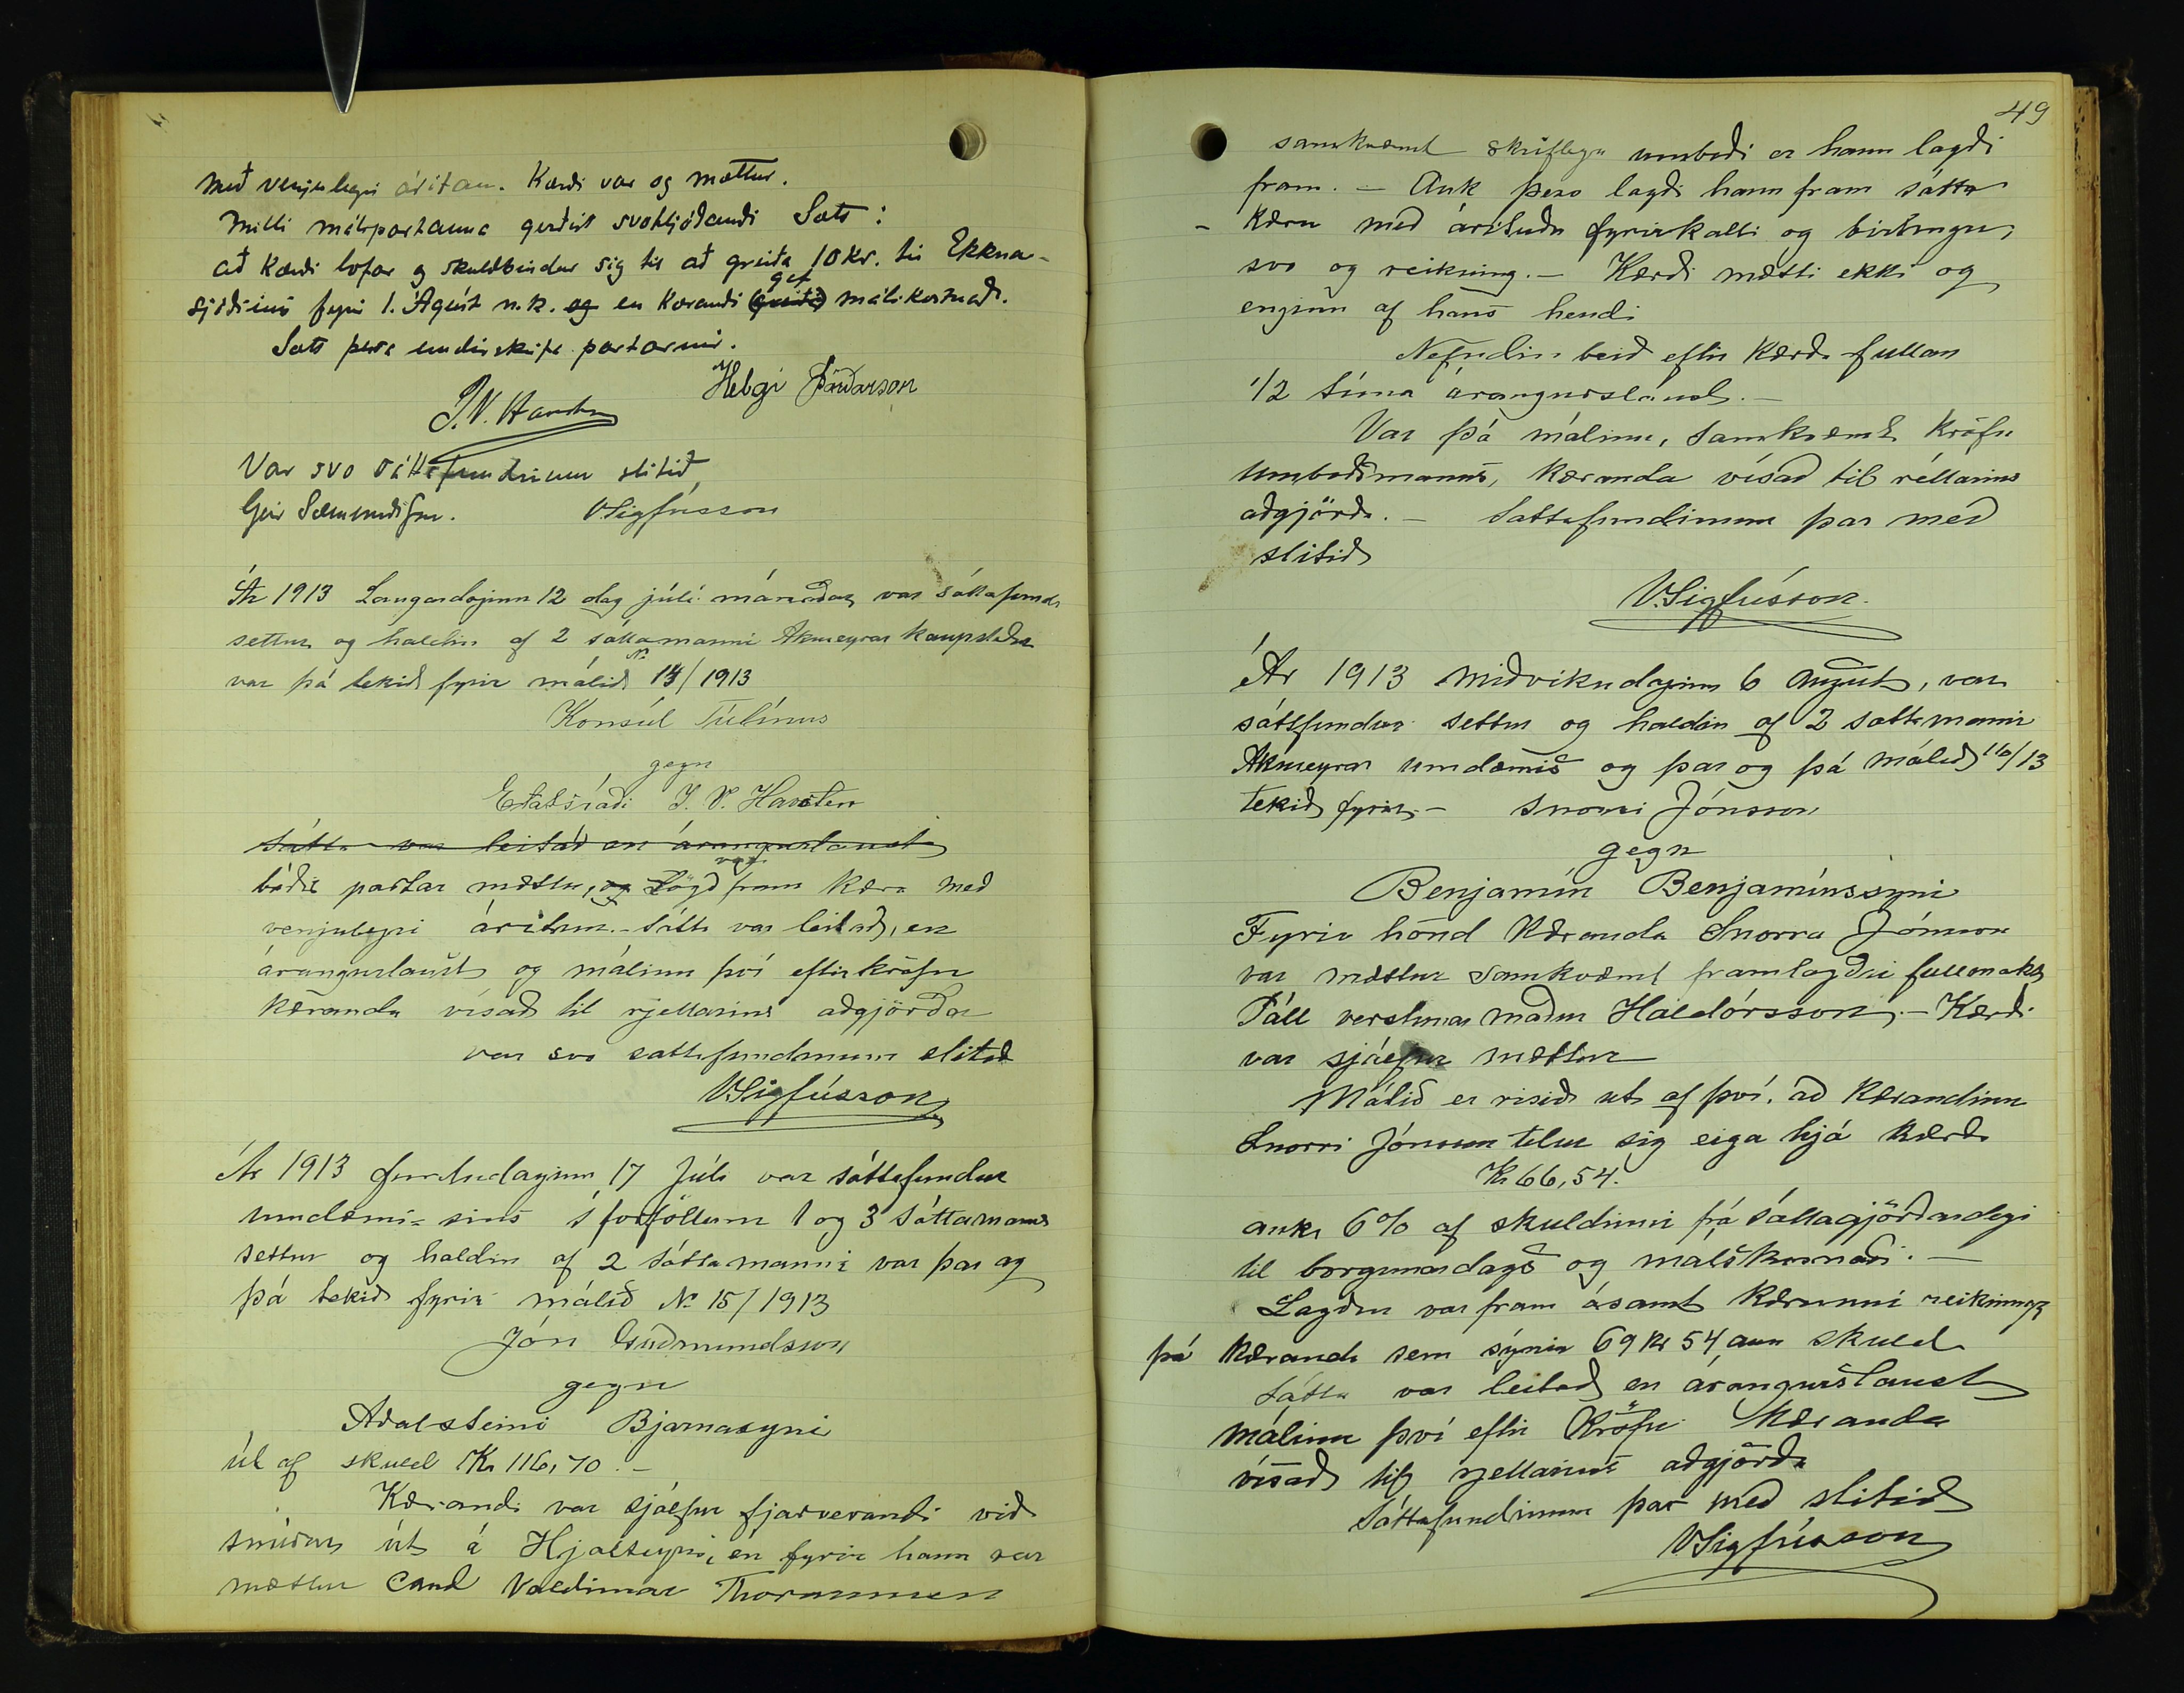 með venjulegri áritan. Kærði var og mættur.
Milli málspartanna gerðist svohljóðandi Sætt:
að Kærði lofar og skuldbindur sig til að greiða 10 kr. til Ekkna-
sjóðsins fyrir 1. Ágúst n.k. og en Kærandi gef málskostnað.
Sætt þessa undirskrifa partarnir.
Helgi Þórðarson
J.V. Havsteen
Var svo sáttafundinum slitið
Geir Sæmundsson. VSigfússon
Ár 1913 Laugardaginn 12 dag júlí mánaðar var sáttafundur
settur og haldin af 2 sáttamanni Akureyrar kaupstaðar
var þá tekið fyrir málið No 14/1913
Konsúl Túliníus
gegn
Etatsráði J. V. Havsteen
Sátta var leitað en árangurslaust
báðir partar mættu, og Lögð var fram kæra með
venjulegri áritun. - Sátta var leitað, en
árangurlaust og málinu því eftir kröfu
kæranda vísað til rjettarins aðgjörðar
var svo sattafundinum slitið
VSigfússon
Ár 1913 fimtudaginn 17 Júlí var sáttafundur
umdæmi-sins í forföllum 1 og 3 Sáttamanns
settur og haldin af 2 sáttamanni var þar og
þá tekið fyrir málið No 15/1913
Jón Guðmundsson
gegn
Aðalsteini Bjarnasyni
út af skuld Kr 116,70. -
Kærandi var sjálfur fjarverandi við
smíðar út á Hjalteyri, en fyrir hann var
mættur Cand Valdimar Thorarensen
49
samkvæmt skriflegu umboði er hann lagði
fram. - Auk þess lagði hann fram sátta
- kæru með árituðu fyrirkalli og birtingu,
svo og reikning. - Kærði mætti ekki og
enginn af hans hendi
Nefndin beið eftir Kærða fullan
1/2 tíma árangurslaust. -
Var þá málinu, samkvæmt kröfu
umboðsmanns, kæranda vísað til réttarins
aðgjörða. - Sattafundinum þar með
slitið
VSigfússon.
Ár 1913 miðvikudaginn 6 ágúst, var
sáttafundur settur og haldin af 2 sattamanni
Akureyrar umdæmis og þar og þá málið 16/13
tekið fyrir. - Snorri Jónsson
gegn
Benjamín Benjamínssyni
Fyrir hönd Kæranda Snorra Jónsson
var mættur samkvæmt framlagðri fullmakt
Páll verslunar maður Halldórsson. - Kærði
var sjálfur mættur
Málið er risið ut af því, að Kærandinn
Snorri Jónsson telur sig eiga hjá Kærða
Kr 66,54.
auk 6% af skuldinni frá sáttagjörðardegi
til borgunardags og malskosnaði. -
Lagður var fram ásamt kærunni reikningr
frá Kæranda sem sýnir 69 Kr 54 aura skuld
Sátta var leitað en árangurslaust
málinu því eftir Kröfu Kæranda
vísað til rjettarins aðgjörða
Sáttafundinum þar með slitið
VSigfússon